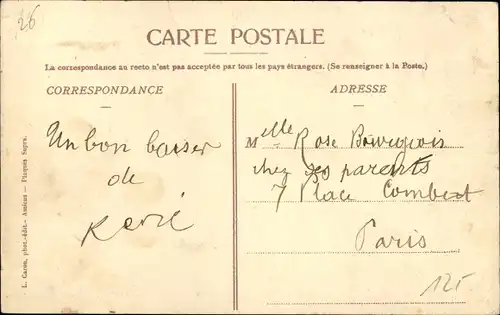 26
CARTE POSTALE
La correspondance au recto n'est pas acceptée par tous les pays étrangers. (Se renseigner à la Poste.)
CORRESPONDANCE
Un bon baiser
de
René
ADRESSE
Melle Rose Bourgeois
chez ses parents
7 Place
Paris
125
L. Caron, phot.-édit.- Amiens — Plaques Supra.